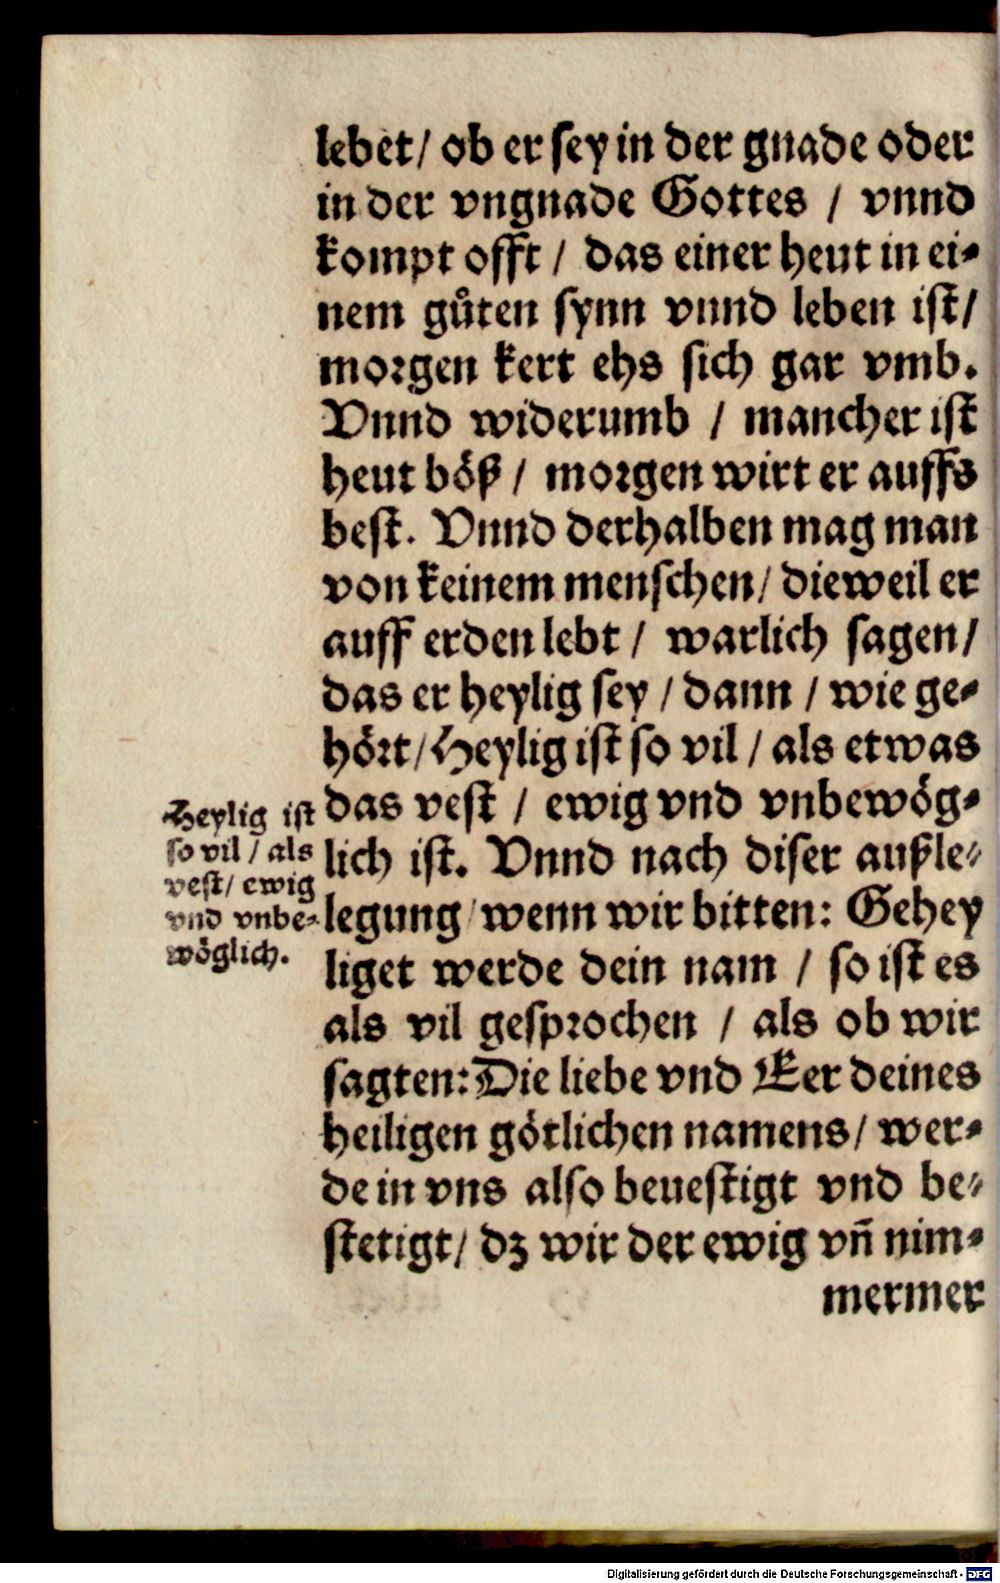 lebet/ ob er sey in der gnade oder
in der vngnade Gottes / vnnd
kompt offt / das einer heut in ei-
nem gůten synn vnnd leben ist/
morgen kert ehs sich gar vmb.
Vnnd widerumb / mancher ist
heut böß / morgen wirt er auffs
best. Vnnd derhalben mag man
von keinem menschen/ dieweil er
auff erden lebt / warlich sagen/
das er heylig sey / dann / wie ge-
hört/ Heylig ist so vil / als etwas
das vest / ewig vnd vnbewög-
lich ist. Vnnd nach diser außle-
legung/ wenn wir bitten: Gehey
liget werde dein nam / so ist es
als vil gesprochen / als ob wir
sagten: Die liebe vnd Eer deines
heiligen götlichen namens/ wer-
de in vns also beuestigt vnd be-
stetigt/ dz wir der ewig vn̄ nim-
mermer
Heylig ist
so vil / als
vest/ ewig
vnd vnbe-
wöglich.
Digitalisierung gefördert durch die Deutsche Forschungsgemeinschaft - DFG